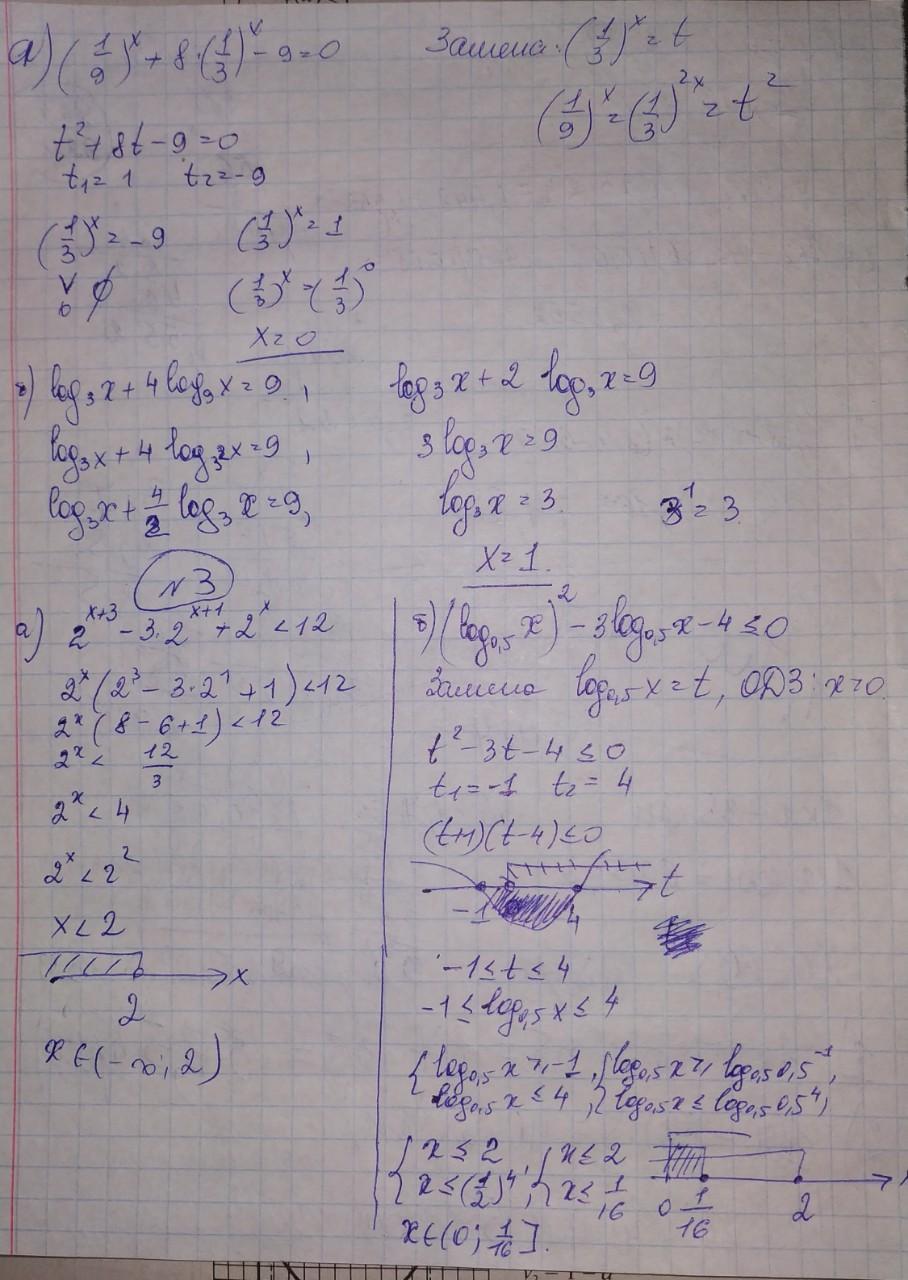 а) (1/9)^x + 8·(1/3)^x - 9 = 0
Замена: (1/3)^x = t
(1/9)^x = (1/3)^2x = t^2
t^2 + 8t - 9 = 0
t₁ = 1 t₂ = -9
(1/3)^x = -9 (1/3)^x = 1
∨
0 ∅ (1/3)^x = (1/3)^0
x = 0
б) log₃x + 4 log₉x = 9,
log₃x + 4 log₃²x = 9,
log₃x + 4/2 log₃x = 9,
log₃x + 2 log₃x = 9
3 log₃x = 9
log₃x = 3. 3^1 = 3
x = 1.
N3
а) 2^x+3 - 3·2^x+1 + 2^x < 12
2^x (2^3 - 3·2^1 + 1) < 12
2^x (8 - 6 + 1) < 12
2^x < 12/3
2^x < 4
2^x < 2^2
x < 2
x
2
x ∈ (-∞; 2)
б) (log₀,₅ x)^2 - 3log₀,₅x - 4 ≤ 0
Замена log₀,₅x = t, ОДЗ: x>0
t^2 - 3t - 4 ≤ 0
t₁ = -1 t₂ = 4
(t+1)(t-4) ≤ 0
t
-1 4
-1 ≤ t ≤ 4
-1 ≤ log₀,₅x ≤ 4
{ log₀,₅x ≥ -1, { log₀,₅x ≥ log₀,₅0,5^-1,
log₀,₅x ≤ 4, log₀,₅x ≤ log₀,₅0,5^4,
{ x ≤ 2, { x ≤ 2
x ≤ (1/2)^4, x ≤ 1/16
0 1/16 2
x ∈ (0; 1/16].